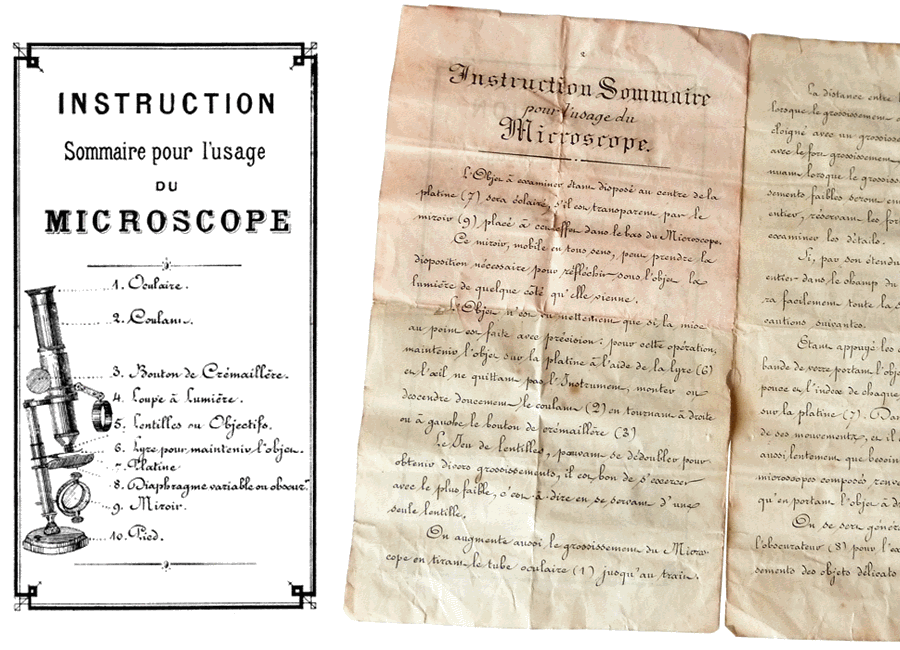 INSTRUCTION
Sommaire pour l'usage
DU
MICROSCOPE
1. Oculaire.
2. Coulant.
3. Bouton de Crémaillère.
4. Loupe à Lumière.
5. Lentilles ou Objectifs.
6. Lyre pour maintenir l'objet.
7. Platine
8. Diaphragme variable ou obscurr
9. Miroir.
10. Pied.
2
Instruction Sommaire
pour l'usage du
Microscope.
L'Objet à examiner étant disposé au centre de la
platine (7) sera éclairé, s'il est transparent par le
miroir (9) placé à cet effet dans le bas du Microscope.
Ce miroir, mobile en tous sens, peut prendre la
disposition nécessaire pour réfléchir sous l'objet la
lumière de quelque côté qu'elle vienne.
L'Objet n'est vu nettement que si la mise
au point est faite avec précision: pour cette opération,
maintenir l'objet sur la platine à l'aide de la lyre (6)
et l'œil ne quittant pas l'Instrument, monter ou
descendre doucement le coulant (2) en tournant à droite
ou à gauche le bouton de crémaillère (3)
Le Jeu de lentilles, pouvant se dédoubler pour
obtenir divers grossissements, il est bon de s'exercer
avec le plus faible, c'est-à-dire en se servant d'une
seule lentille.
On augmente aussi le grossissement du Micros-
cope en tirant le tube oculaire (1) jusqu'au trait.
La distance entre
lorsque le grossissement
éloigné avec un grossiss
avec le fort grossissement
nuant lorsque le grossis
sements faibles seront em
entier, réservant les for
examiner les détails.
Si, par son étendu
entier dans le champ du
ra facilement toute la s
cautions suivantes.
Étant appuyé les
bande de verre portant l'obj
pouce et l'index de chaque
sur la platine (7). Dan
de ses mouvements, et il
aussi lentement que besoin
microscopes composés renve
qu'en portant l'objet à d
On se sert génér
l'obscurateur (8) pour l'ex
sements des objets délicats